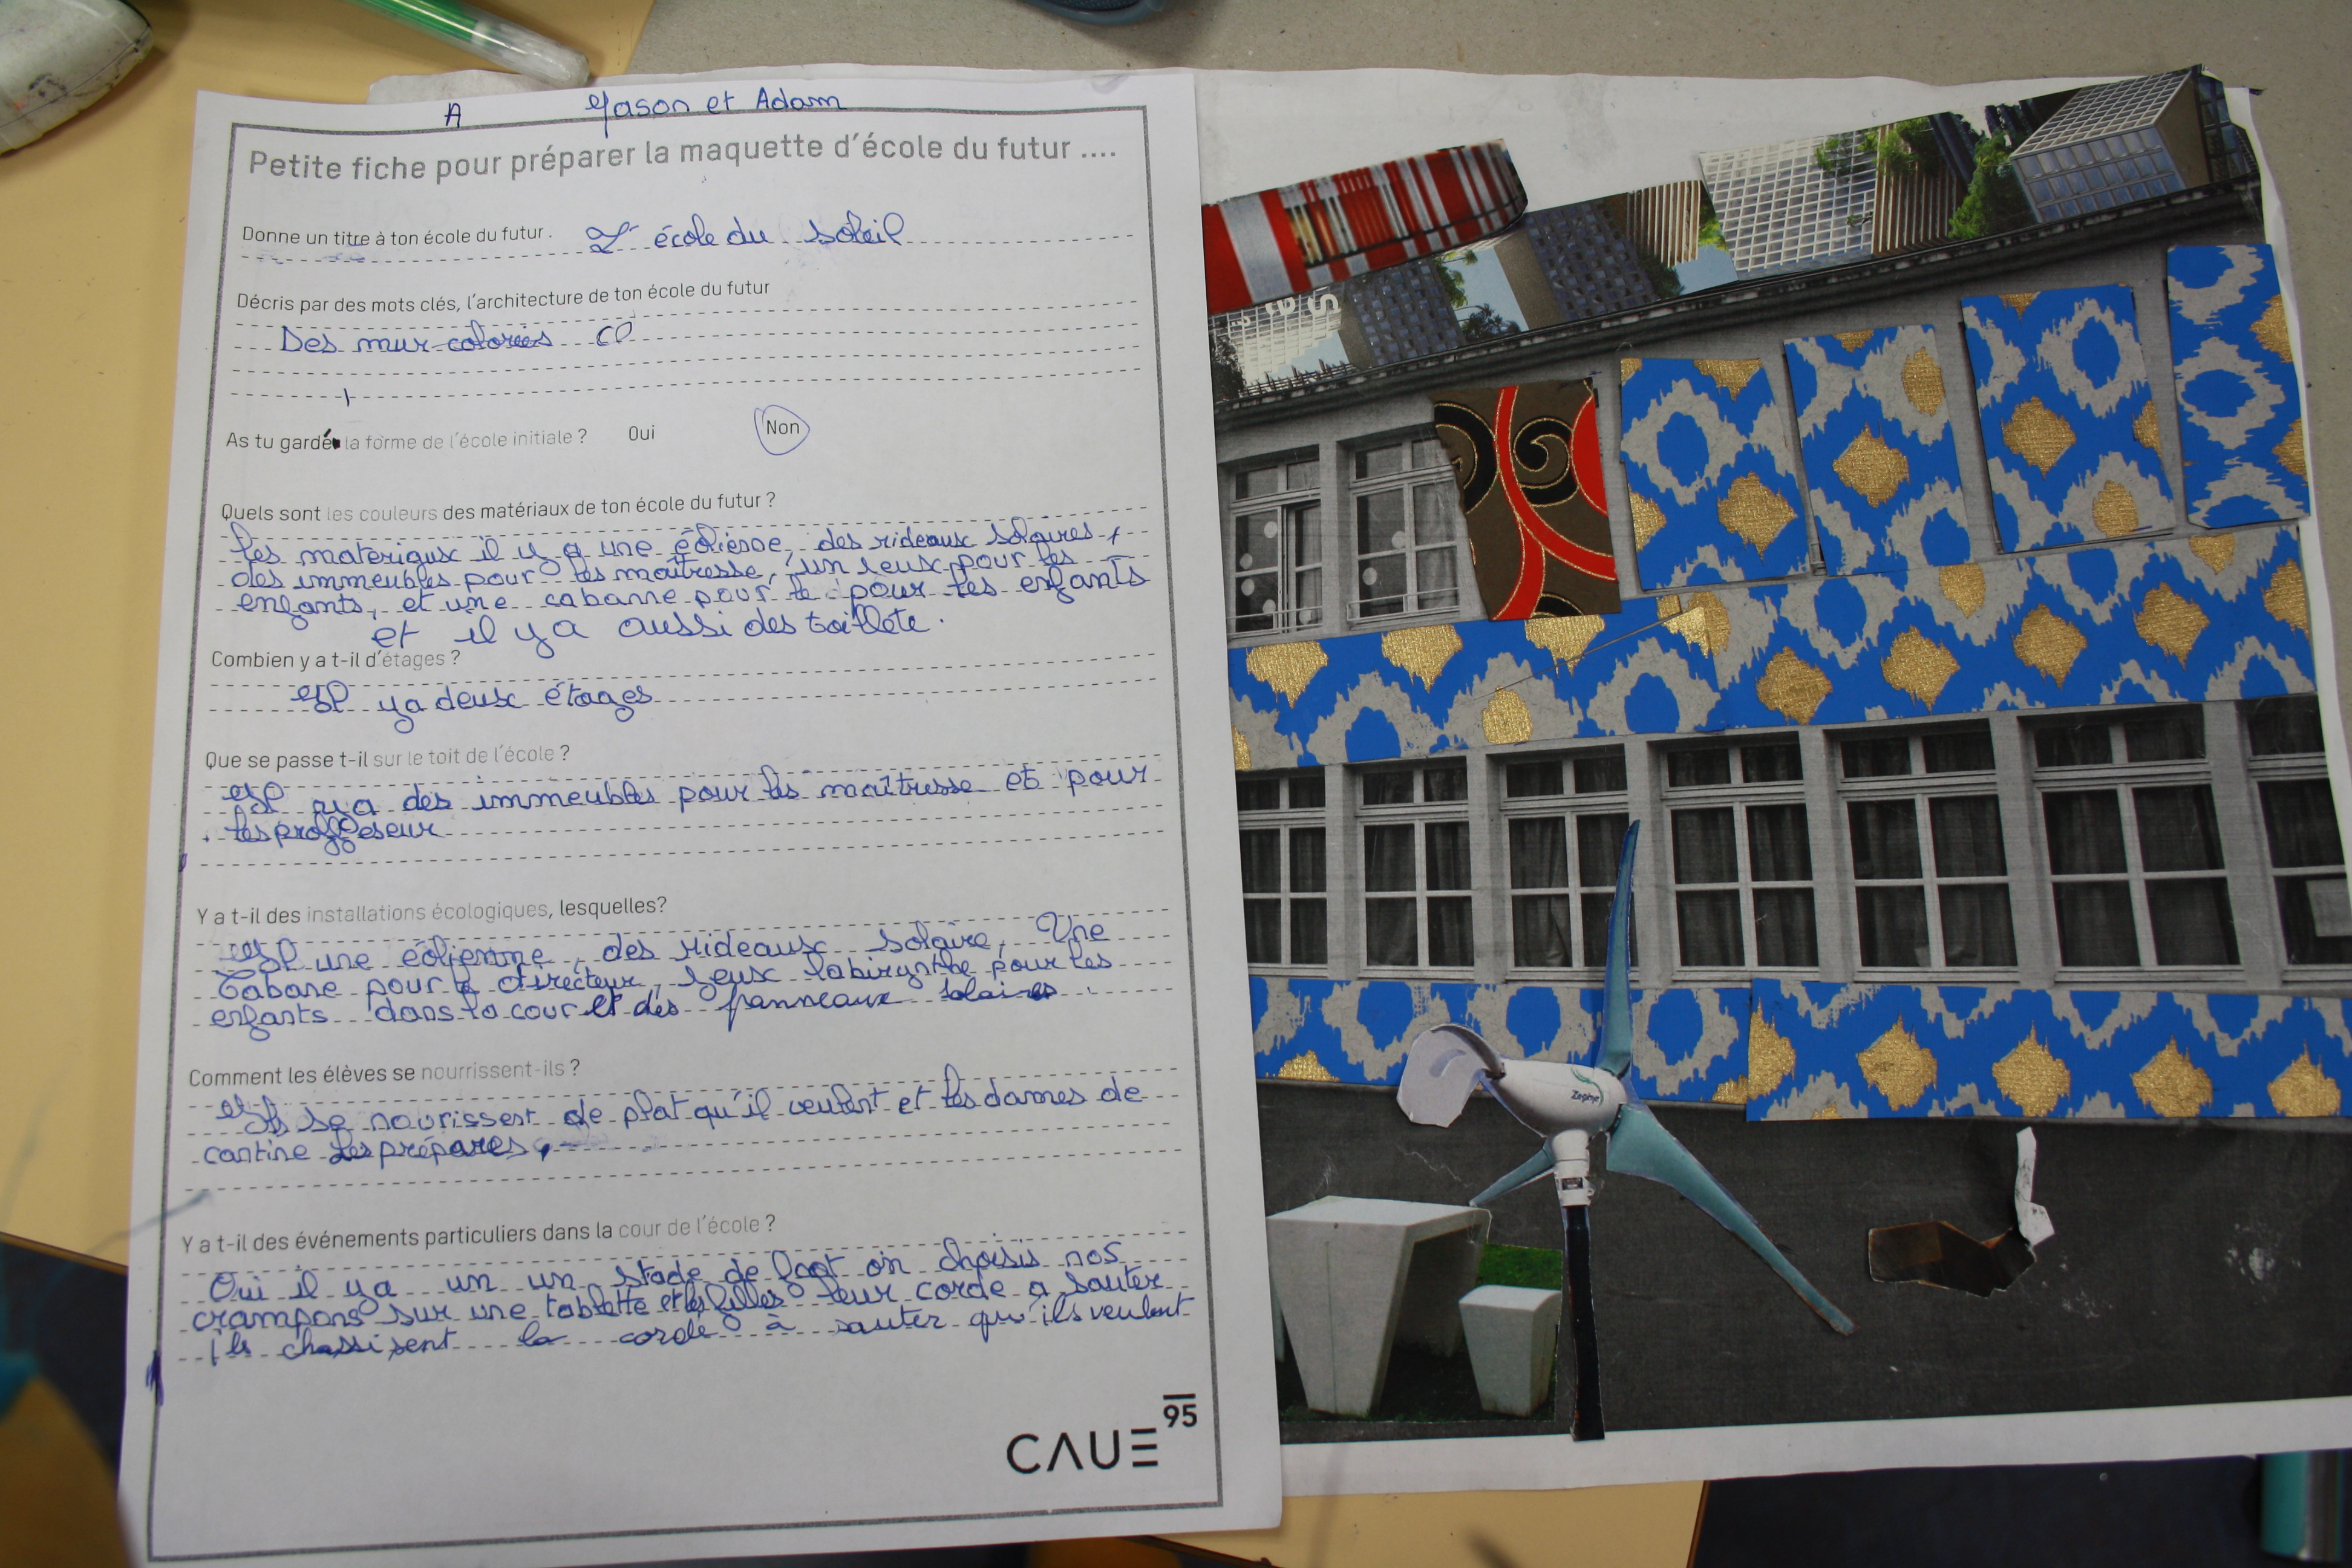 A Yason et Adam
Petite fiche pour préparer la maquette d'école du futur ....
Donne un titre à ton école du futur . L'école du soleil
Décris par des mots clés, l'architecture de ton école du futur
Des mur colorés
As tu gardé la forme de l'école initiale ? Oui Non
Quels sont les couleurs des matériaux de ton école du futur ?
les materiaux il y a une éolienne, des rideaux solaires,
des immeubles pour les maîtresse, un jeux pour les
enfants, et une cabanne pour le pour les enfants
et il y a aussi des toillete.
Combien y a t-il d'étages ?
Il y a deux étages
Que se passe t-il sur le toit de l'école ?
Il y a des immeubles pour les maîtresse et pour
les proffeseur
Y a t-il des installations écologiques, lesquelles?
Il une éolienne, des rideaux solaire, Une
Cabane pour le directeur, jeux labirynthe pour les
enfants dans la cour et des panneaux solaires
Comment les élèves se nourrissent-ils ?
Ils se nourissent de plat qu'il veulent et les dames de
cantine les prépares,
Y a t-il des événements particuliers dans la cour de l'école ?
Oui il y a un un stade de foot on choisis nos
crampons sur une tablette et les filles leur corde a sauter
ils choisisent la corde à sauter qu'ils veulent
CAUE 95
Zephyr